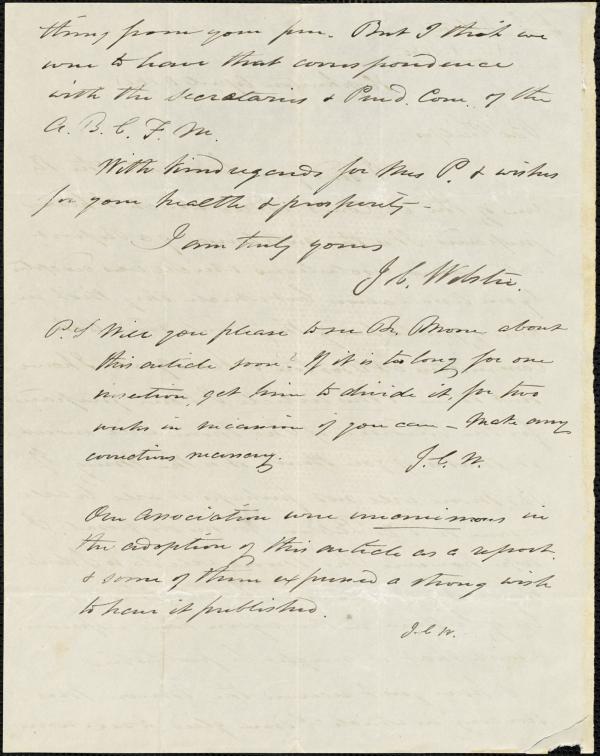 thing from your pen. But I think we
were to have that correspondence
with the Secretaries & Prud. Com. of the
A. B. C. F. M.
With kind regards for Mrs P. & wishes
for your health & prosperity -
I am truly yours
J. C. Webster.
P.S Will you please to see Br. about
this article soon? If it is too long for one
insertion, get him to divide it, for two
weeks in succession if you can - Make any
corrections necessary.
J. C. W.
Our Association were unanimous in
the adoption of this article as a report.
& some of them expressed a strong wish
to have it published.
J. C. W.